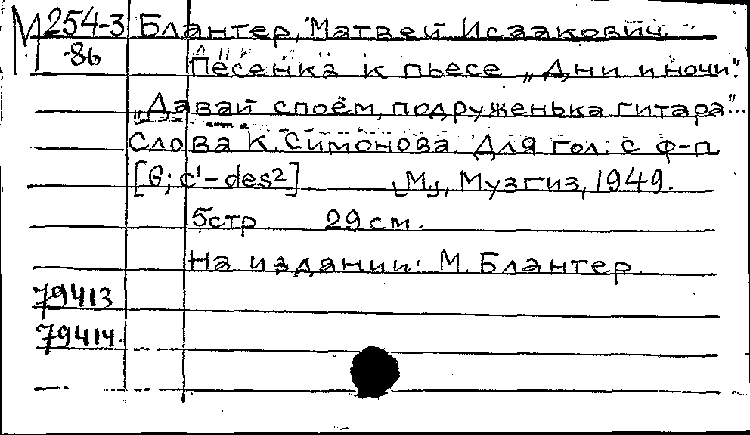 М 254-3 Блантер, Матвей Исаакович
-86 Песенка к пьесе „Дни и ночи".
„Давай споём, подруженька гитара"...
Слова К. Симонова. Для гол. с ф-п.
[G; c¹-des²] [М], Музгиз, 1949.
5стр 29 см.
На издании: М. Блантер.
79413
79414.